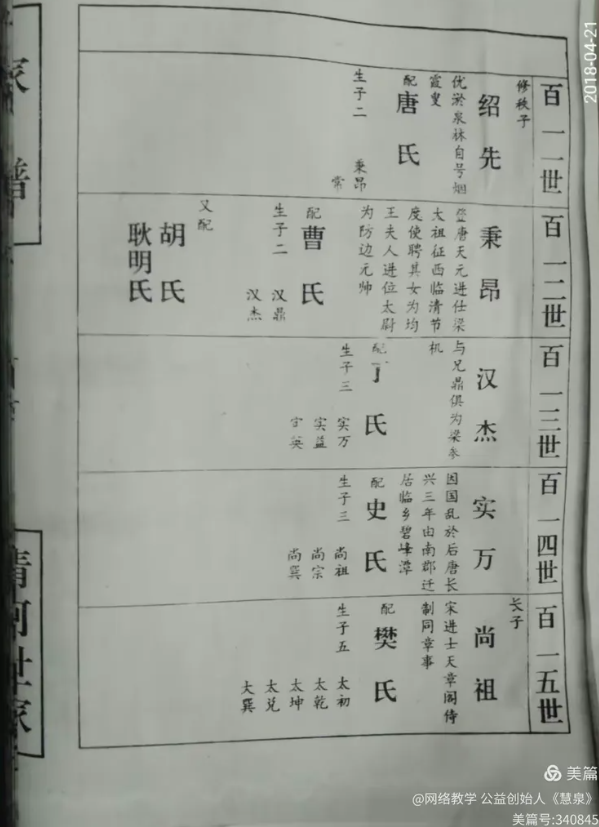 家谱
清河世家
百一一世
修秩子
绍先
优淤泉林自号烟
霞叟
配
唐氏
生子二
秉昂
常
百一二世
秉昂
登唐天元进仕梁
大祖征西临清节
度使聘其女为均
王夫人进位太尉
为防边元帅
配
曹氏
生子二
汉鼎
汉杰
又配
胡氏
耿明氏
百一三世
汉杰
与兄鼎俱为梁参
机
配
丁氏
生子三
实万
实益
实英
百一四世
实万
因国乱於后唐长
兴三年由南郡迁
居临乡碧峰潭
配
史氏
生子三
尚祖
尚宗
尚巽
百一五世
长子
尚祖
宋进士天章阁侍
制同章事
配
樊氏
生子五
太初
太乾
太坤
太兑
大巽
2018-04-21
美篇
@网络教学 公益创始人《慧泉》
美篇号:340845